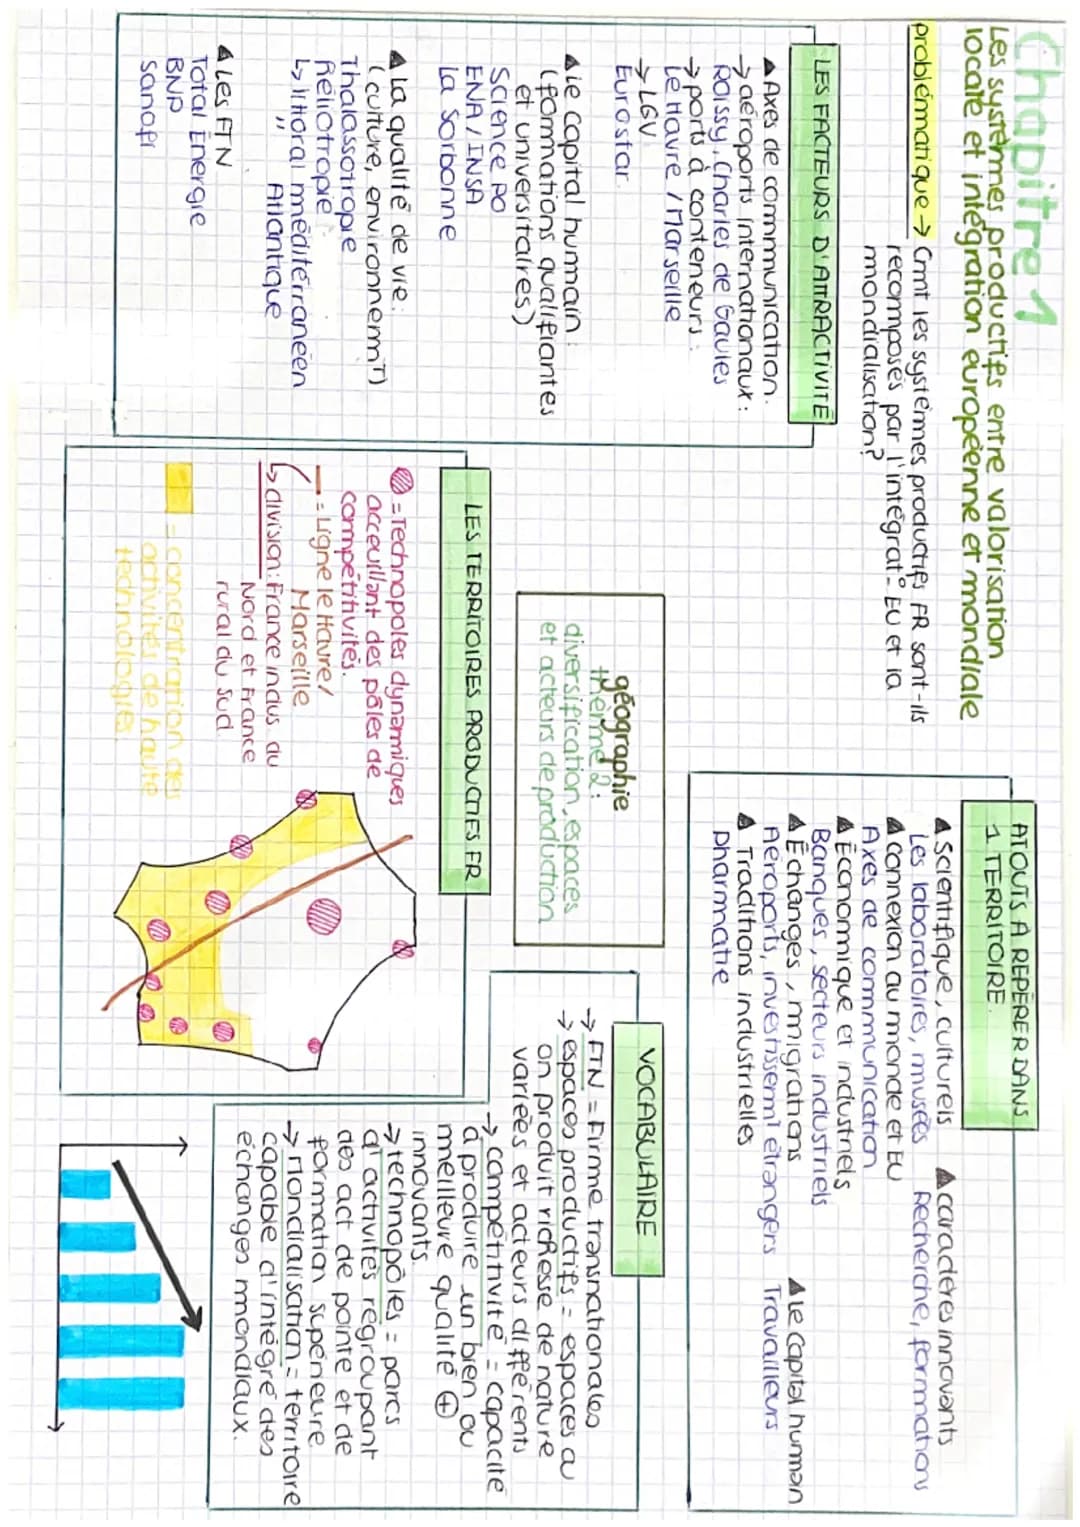 Chapitre 1
Les systèmes productifs entre valorisation
locale et intégration européenne et mondiale
problématique → Cmt les systèmes productifs FR sont-ils
recomposés par l'intégrat° EU et la
mondialisation?
LES FACTEURS D'ATTRACTIVITÉ
▲ Axes de communication.
→ aéroports internationaux:
Roissy, Charles de Gaulles
→ ports à conteneurs:
Le Havre / Marseille
→ LGV
Eurostar.
▲ le capital humain:
(formations qualifiantes
et universitaires)
Science PO
ENA / INSA
La Sorbonne
▲ La qualité de vie:
(culture, environnemt)
Thalassotropie
Héliotropie
↳ littoral méditérranéen
" Atlantique
▲ Les FTN
Total Énergie
BNP
Sanofi
géographie
thème 2:
diversification, espaces
et acteurs de production
LES TERRITOIRES PRODUCTIFS FR
= Technopoles dynamiques
acceuillant des pôles de
compétitivités.
= Ligne le Havre/
Marseille
↳ division: France indus. du
Nord et France
rural du Sud.
= concentration des
activités de haute
technologies.
ATOUTS À REPÉRER DANS
1 TERRITOIRE
▲ Scientifique, culturels
Les laboratoires, musées
▲ connexion au monde et EU
Axes de communication
▲ Économique et industriels
Banques, secteurs industriels
▲ Échanges, migrations
Aéroports, investissemt étrangers
▲ Traditions industrielles
Pharmatie
▲ caractères innovants
Recherche, formations
▲ le capital human
Travailleurs
VOCABULAIRE
→ FTN = Firme transnationales
→ espaces productifs = espaces où
on produit richesse de nature
variées et acteurs différents
→ compétitivité = capacité
à produire un bien ou
meilleure qualité ⊕
innovants.
→ technopôles = parcs
d'activités regroupant
des act de pointe et de
formation supérieure.
→ Mondialisation = territoire
capable d'intégré des
échanges mondiaux.